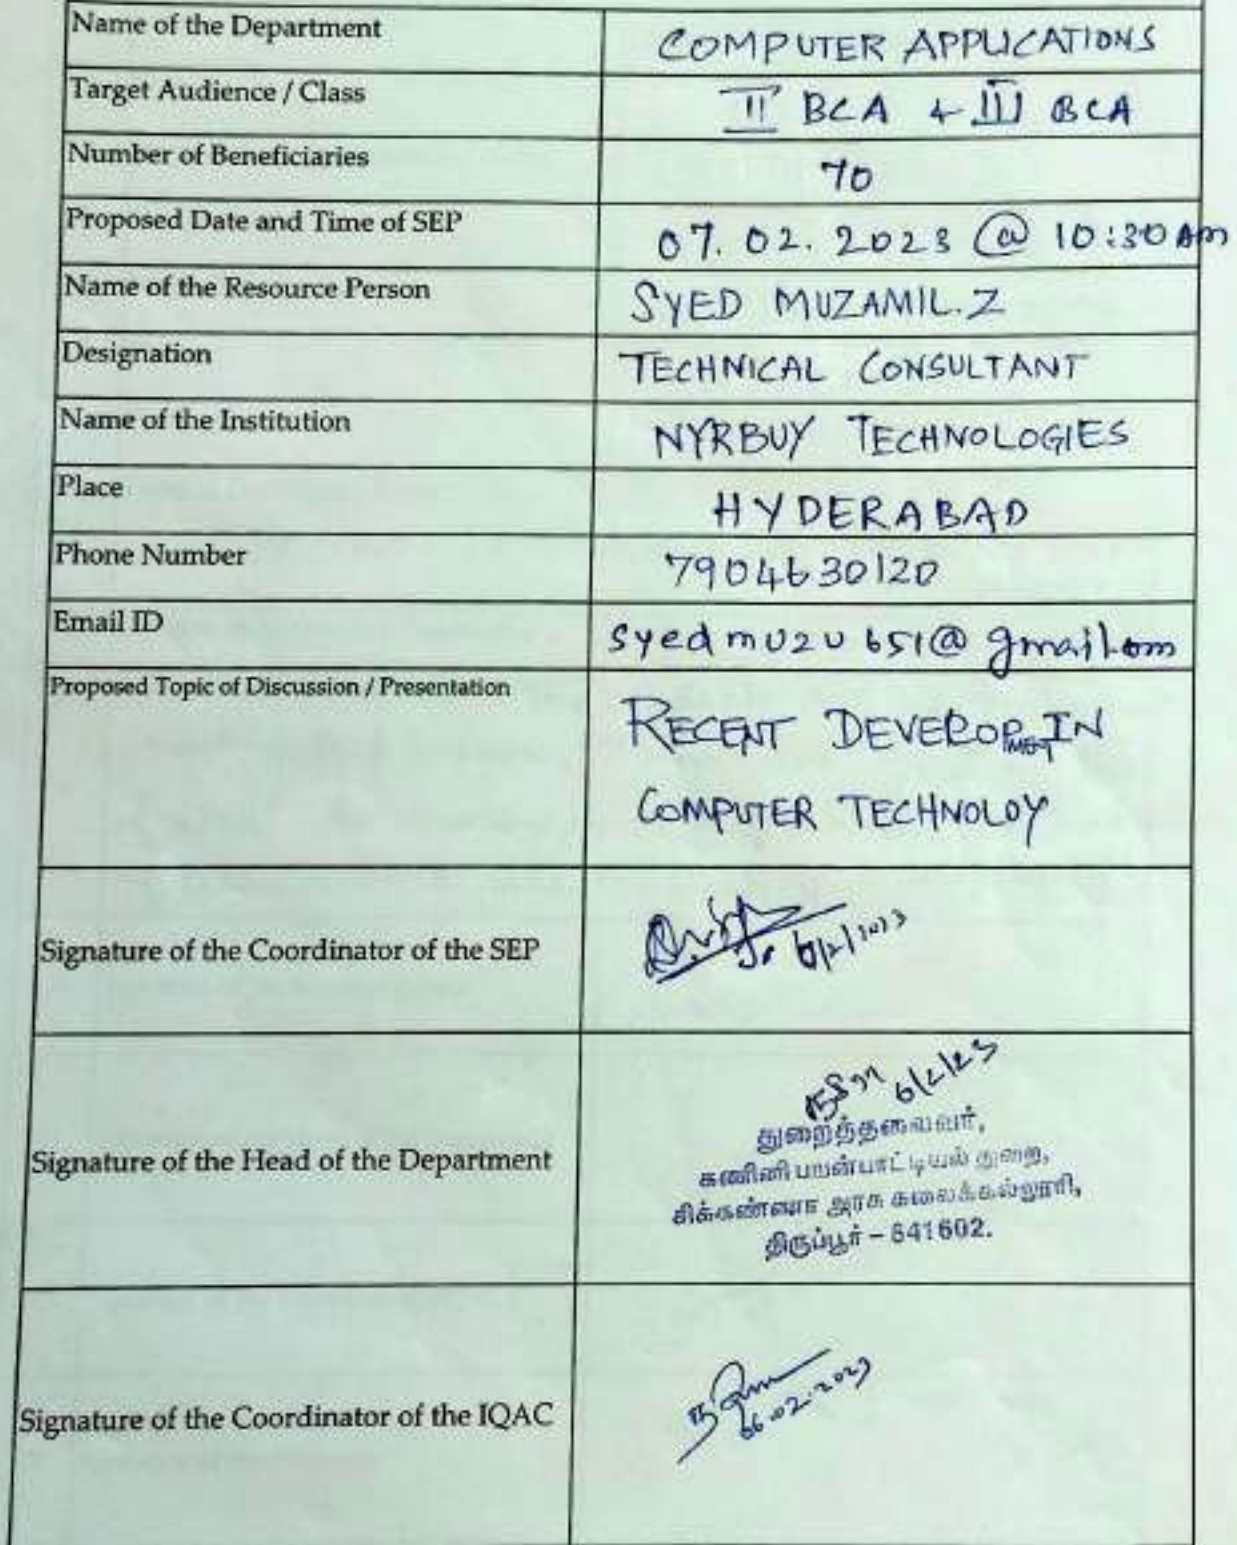 Name of the Department COMPUTER APPLICATIONS
Target Audience / Class II BCA & III BCA
Number of Beneficiaries 70
Proposed Date and Time of SEP 07.02.2023 @ 10:30 AM
Name of the Resource Person SYED MUZAMIL.Z
Designation TECHNICAL CONSULTANT
Name of the Institution NYRBUY TECHNOLOGIES
Place HYDERABAD
Phone Number 7904630120
Email ID syedmuzu651@gmail.com
Proposed Topic of Discussion / Presentation
RECENT DEVEROPMET IN
COMPUTER TECHNOLOY
Signature of the Coordinator of the SEP 6/2/2023
6/2/23
துறைத்தலைவர்,
Signature of the Head of the Department
கணினி பயன்பாட்டியல் துறை,
சிக்கண்ணா அரசு கலைக்கல்லூரி,
திருப்பூர் – 641602.
Signature of the Coordinator of the IQAC 06.02.2023